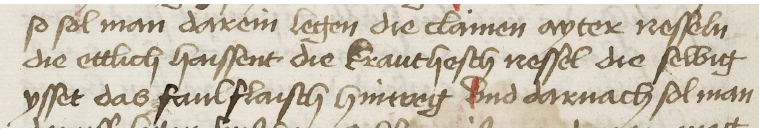 so sol man darein legen die clainen ayter nesseln
die ettlich haissent die krauthesch nessel die selbig
ysset das faul flaisch hinweg Vnd darnach sol man